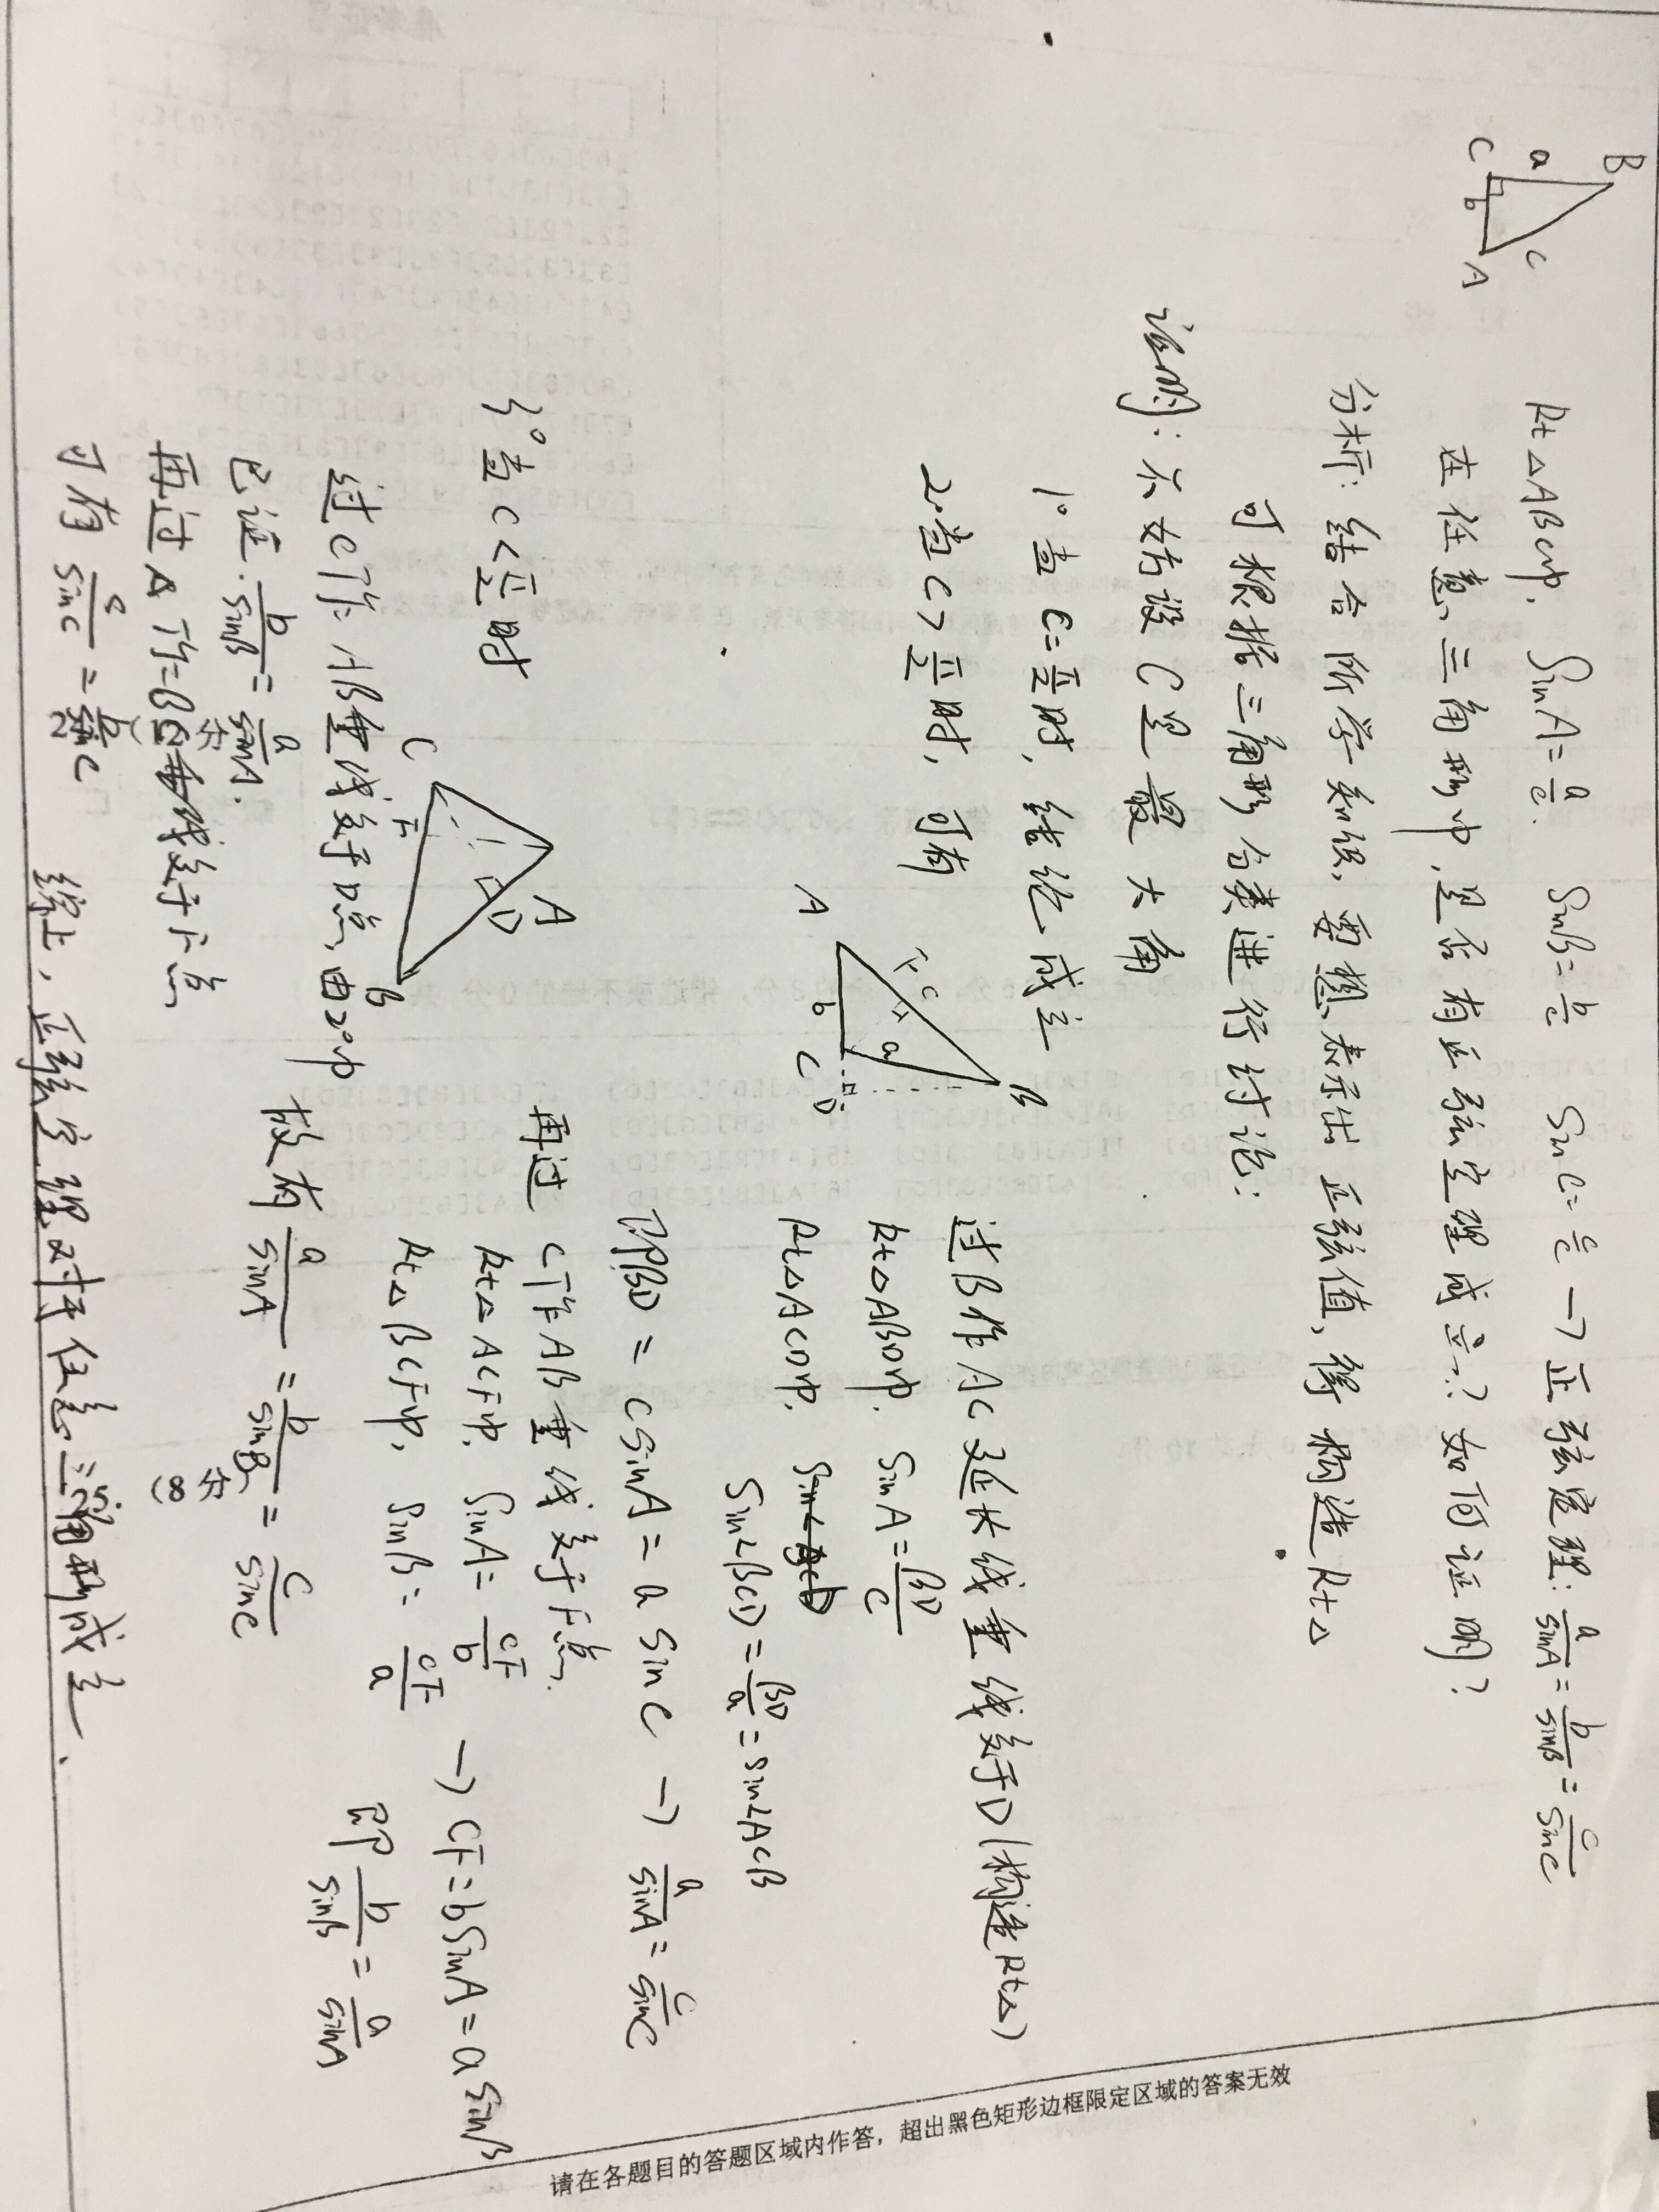 B
a
c
C
b
A
Rt△ABC中, SinA=a/c. SinB=b/c SinC=c/c → 正弦定理: a/sinA=b/sinB=c/sinC
在任意三角形中,是否有正弦定理成立?如何证明?
分析: 结合所学知识,要想表示出正弦值,得构造Rt△
可根据三角形分类进行讨论:
证明: 不妨设C是最大角
1° 当C=π/2时, 结论成立
2°当C>π/2时, 可有
A
b
C
D
a
c
F
B
过B作AC延长线垂线交于D(构造Rt△)
Rt△ABD中. SinA=BD/c
Rt△ACD中.
Sin∠BCD=BD/a=Sin∠ACB
即BD=cSinA=a Sin C → a/sinA=c/sinC
再过C作AB垂线交于F点.
Rt△ACF中. SinA=CF/b
Rt△BCF中, SinB=CF/a → CF=bSinA=aSinB
即 b/sinB=a/sinA
3°当C<π/2时
C
F
A
D
B
过C作AB垂线交于D点, 由2°中
已证.b/sinB=a/sinA.
再过A作BC垂线交于F点
可有 c/sinC=b/
故有 a/sinA=b/sinB=c/sinC
综上, 正弦定理对于任意三角形成立.
请在各题目的答题区域内作答,超出黑色矩形边框限定区域的答案无效